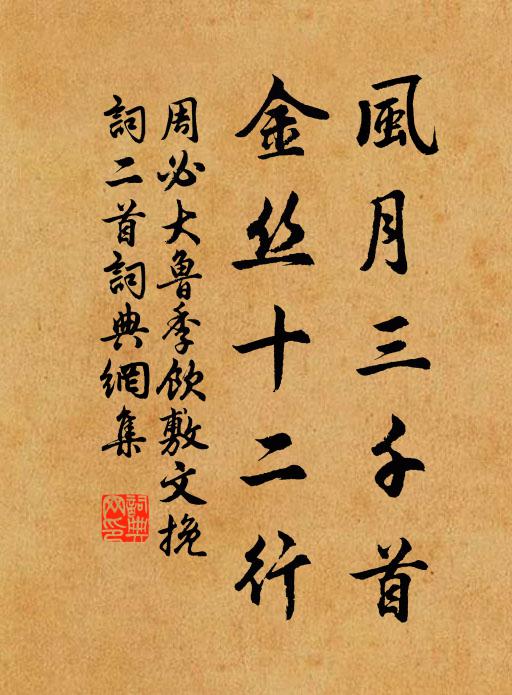 風月三千首
金丝十二行
周必大魯季欽敷文挽
詞二首詞典網集
詞典網印